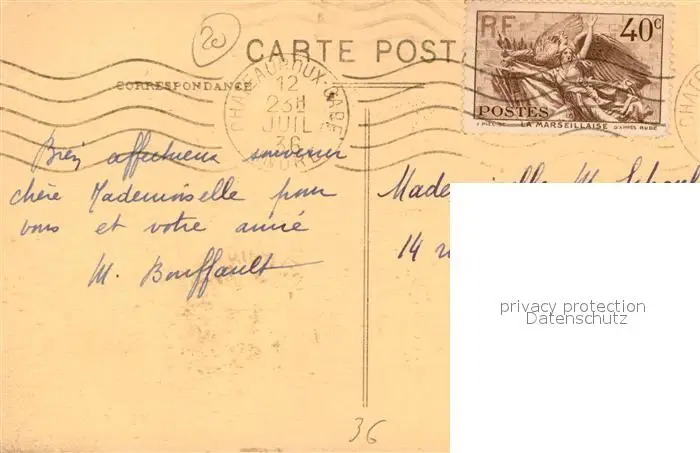 20
CARTE POST
RF 40c
POSTES
LA MARSEILLAISE D'APRES RUDE
CORRESPONDANCE
CHATEAUROUX-GARE
12
23H
JUIL
36
INDRE
Bien affectueux souvenir
chère Mademoiselle pour
vous et votre amie
M. Bouffault
Mademoiselle M.
14
privacy protection
Datenschutz
36